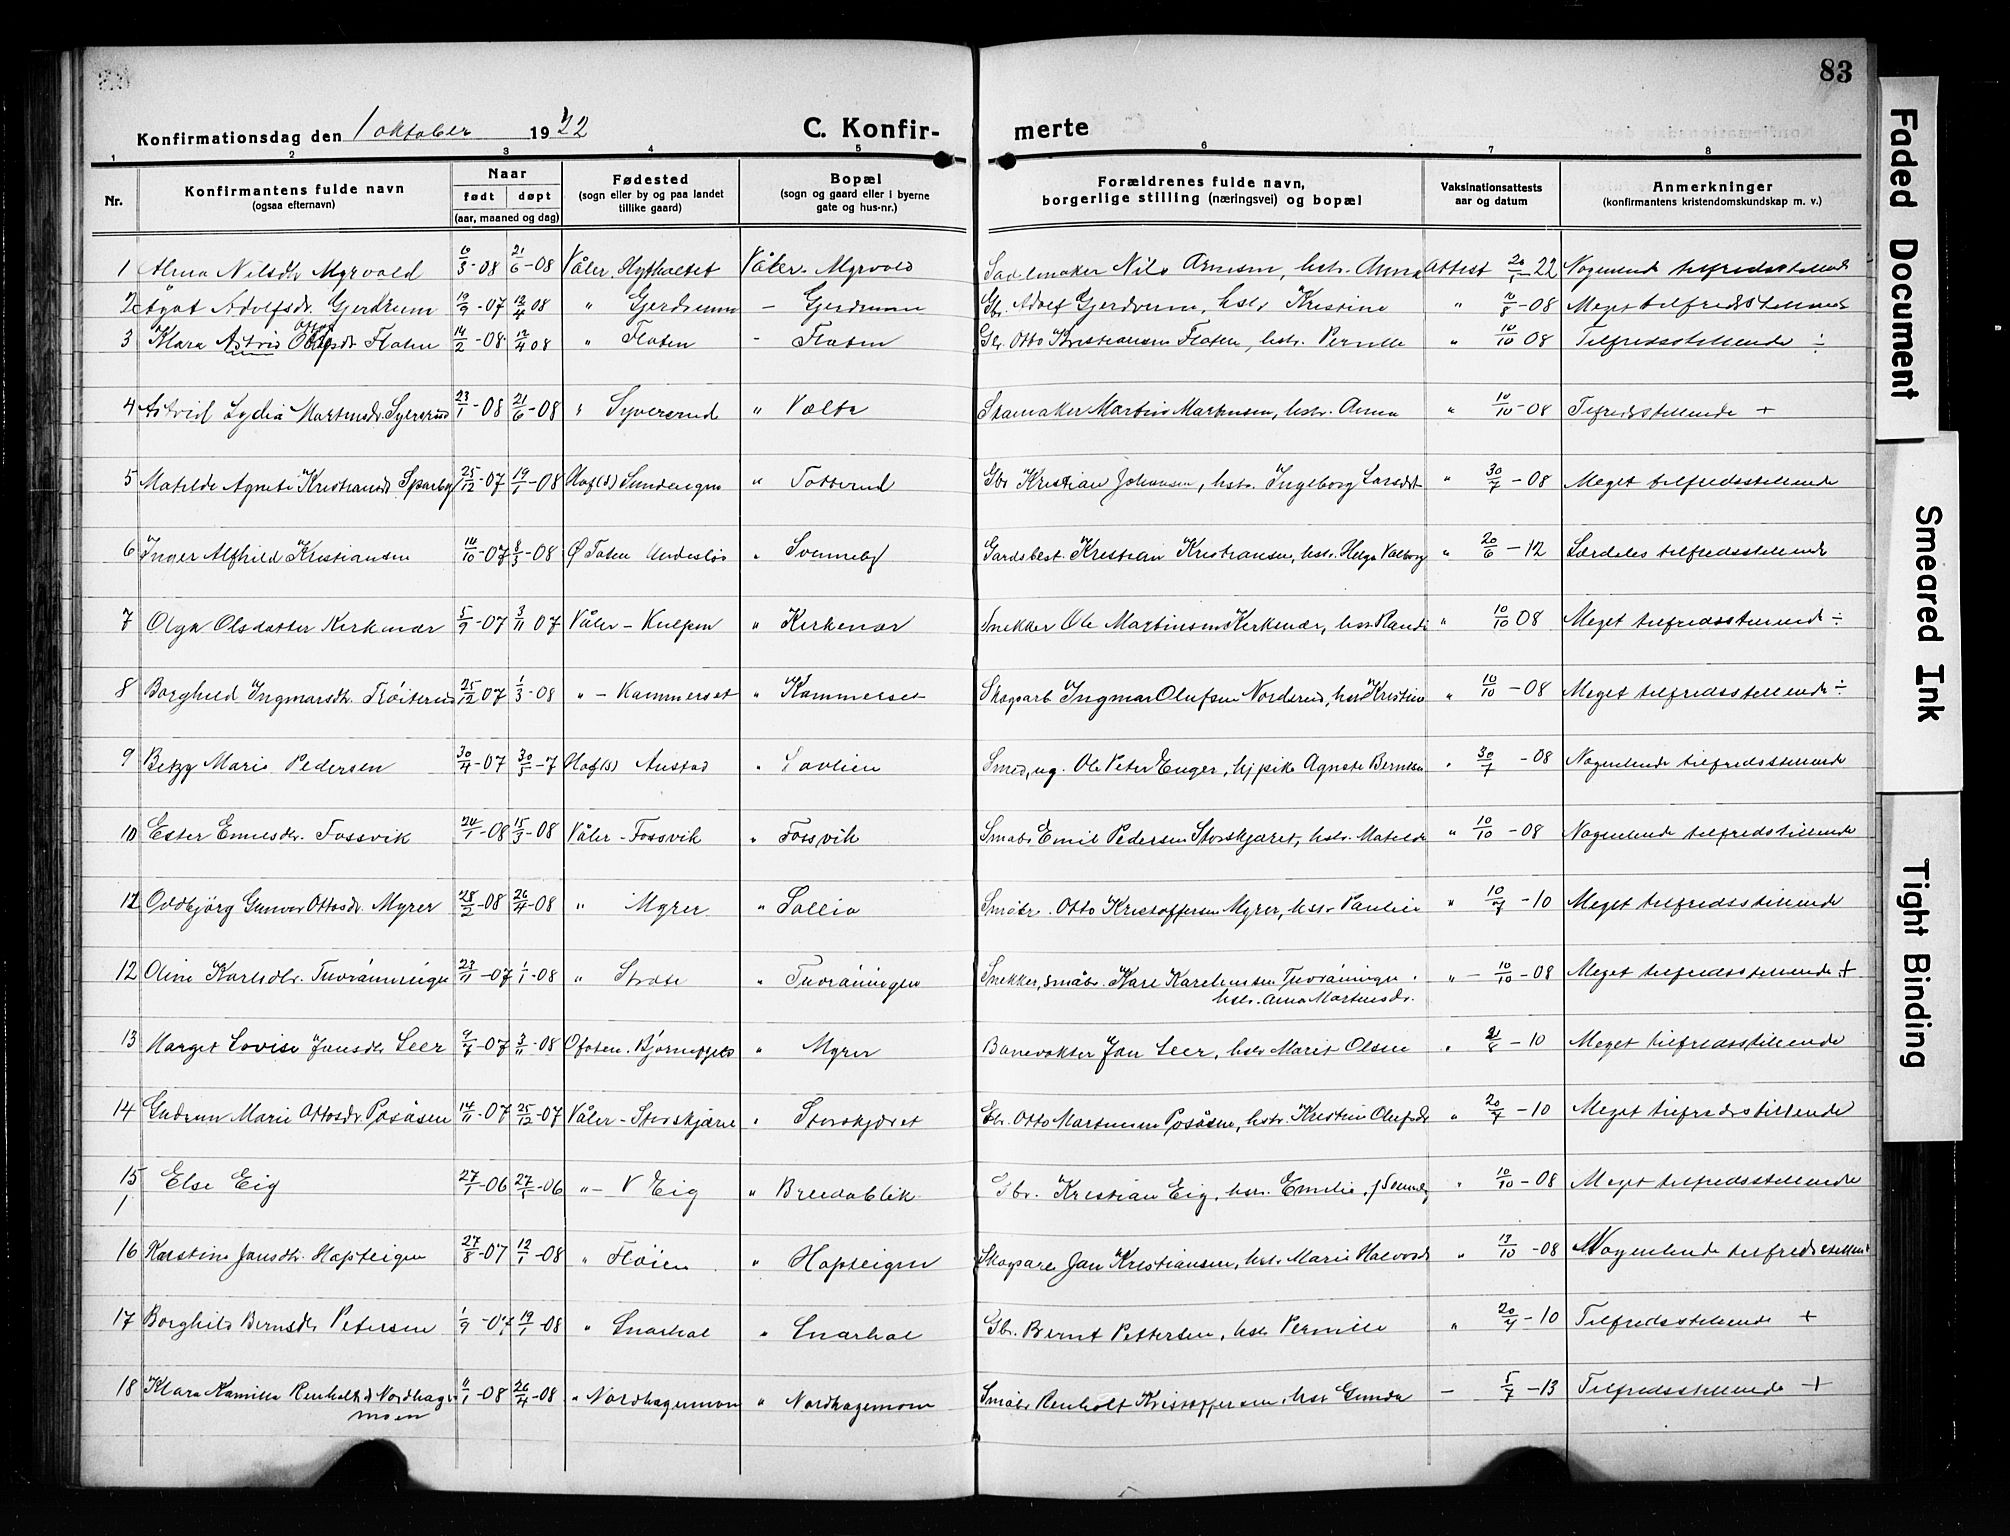 83
Konfirmationsdag den 1 oktober 1922 C. Konfirmerte
1 2 3 4 5 6 7 8
Nr. Konfirmantens fulde navn (ogsaa efternavn) Naar født døpt (aar, maaned og dag) Fødested (sogn eller by og paa landet tillike gaard) Bopæl (sogn og gaard eller i byerne gate og hus-nr.) Forældrenes fulde navn, borgerlige stilling (næringsvei) og bopæl Vaksinationsattests aar og datum Anmerkninger (konfirmantens kristendomskundskap m. v.)
1 Alma Nilsdtr Myrvold 10/3-08 21/6-08 Våler, Våler. Myrvold Sadelmaker Nils Arnesen, hstr. Anna Attest 20/1 22 Nogenlunde tilfredsstillende
2 Ågot Adolfsdr. Gjerdrum 19/9-07 12/4 08 " Gjerdrum – Gjerdrum Gbr. Adolf Gjerdrum, hstr Kristine " 10/8-08 Meget tilfredsstillende
3 Klara Astrid Ottosdr Flaten 14/2-08 12/4 08 " Flaten – Flaten Gbr. Otto Kristiansen Flaten, hstr. Pernille " 10/10 08 Tilfredsstillende ÷
4 Astrid Lydia Martinsdr. Syversrud 23/1-08 21/6-08 " Syversrud " Vælta Skomaker Martin Martinsen, hstr. Anna " 10/10-08 Tilfredsstillende +
5 Matilde Agnete Kristiansdr Sparby 25/12-07 19/1-08 Hof (S) Sundengen " Totterud Gbr Kristian Johansen, hstr. Ingeborg Larsdt " 30/7-08 Meget tilfredsstillende
6 Inger Alfhild Kristiansen 10/10-07 8/3-08 Ø Toten " Svenneby Gardsbest Kristian Kristiansen, hstr. Helga Valborg " 20/6-12 Særdeles tilfredsstillende
7 Olga Olsdatter Kirkenær 5/9-07 3/11 07 Våler – Knepen " Kirkenær Snekker Ole Martinsen Kirkenær, hstr Randi " 10/10 08 Meget tilfredsstillende ÷
8 Borghild Ingmarsdtr. Trøiterud 25/12 07 1/3-08 " – Kammerset " Kammerset Skogsarb Ingmar Olufsen Norderud, hstr Kristine " 10/10-08 Meget tilfredsstillende ÷
9 Betzy Marie Pedersen 30/4-07 30/5-7 Hof (S) Austad " Lavlien Smed, ug. Ole Peter Enger, hj pike Agnete Berntsen " 30/7-08 Nogenlunde tilfredsstillende
10 Ester Emilsdtr. Fossvik 24/1-08 15/3-08 Våler – Fossvik " Fossvik Småbr Emil Pedersen Storskjæret, hstr. Matilde " 10/10-08 Nogenlunde tilfredstillende
12 Oddbjörg Gunvor Ottosdr. Myrer 28/2-08 26/4-08 " Myrer " Sollia Småbr. Otto Kristoffersen Myrer, hstr Pauline " 10/7-10 Meget tilfredsstillende
12 Oline Karlsdtr. Tuvråningen 23/11-07 1/1-08 " " Tuvråningen Snekker, småbr. Karl Karelinssen Tuvråningen.
hstr. Anna Martinsdr. " – 10/10-08 Meget tilfredsstillende +
13 Marget Lovise Jansdtr Seer 9/7-07 3/11-08 Ofoten. Bjørnefjeld " Myrer Banevokter Jan Seer, hstr Marit Olsen " 21/8-10 Meget tilfredsstillende
14 Gudrun Marie Ottosdr Posåsen 14/11-07 25/12-07 Våler – Storskjæret " Storskjæret Gbr. Otto Martinsen Posåsen, hstr. Kristine Olufsdt " 20/7-10 Meget tilfredsstillende
15 Else Eig 27/1-06 27/5-06 " – V Eig " Breidablik Gbr. Kristian Eig, hstr. Emilie, " 10/10-08 Meget tilfredsstillende
1
16 Kirstine Jansdtr. Hapteigen 27/8-07 12/1-08 " Fløien " Hapteigen Skogsarb Jan Kristiansen, hstr. Marie Halvorsdr " 13/10-08 Nogenlunde tilfredsstillende
17 Borghild Berntsdtr Petersen 1/9-07 19/1-08 " Snarhol " Snarhol Gbr. Bernt Pettersen, hstr Pernille " 20/7-10 Tilfredsstillende +
18 Klara Kamilla Reinholtsdr Nordhagen 11/1-08 26/4-08 " Nordhagenmoen " Nordhagemoen Småbr Reinholt Kristoffersen, hstr Gunda – 5/7-13 Tilfredsstillende +
moen
Faded Document
Smeared Ink
Tight Binding